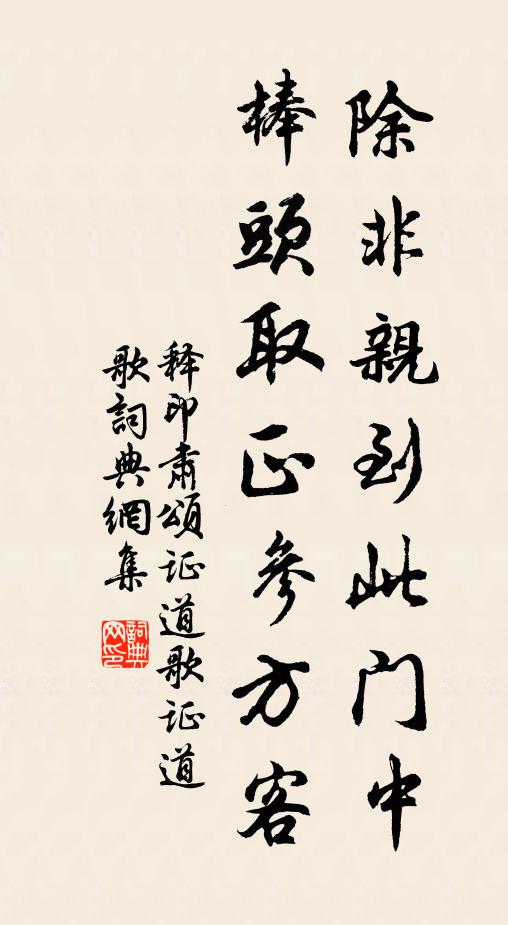 除非親到此门中
棒頭取正參方客
释印肃頌证道歌证道
歌詞典網集
詞典
网印